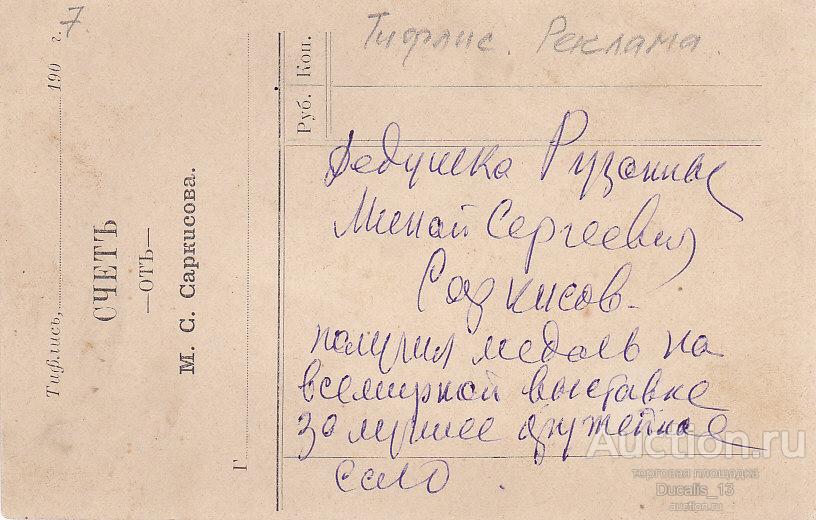 Тифлис. Реклама.
Тифлисъ, 190 7 г.
СЧЕТЪ
—ОТЪ—
М. С. Саркисова.
Г
Руб. Коп.
Дедушка Рузанны
Минай Сергеевич
Саркисов.
получил медаль на
всемирной выставке
за лучшее
сало.
Auction.ru
торговая площадка
Ducalis_13
auction.ru